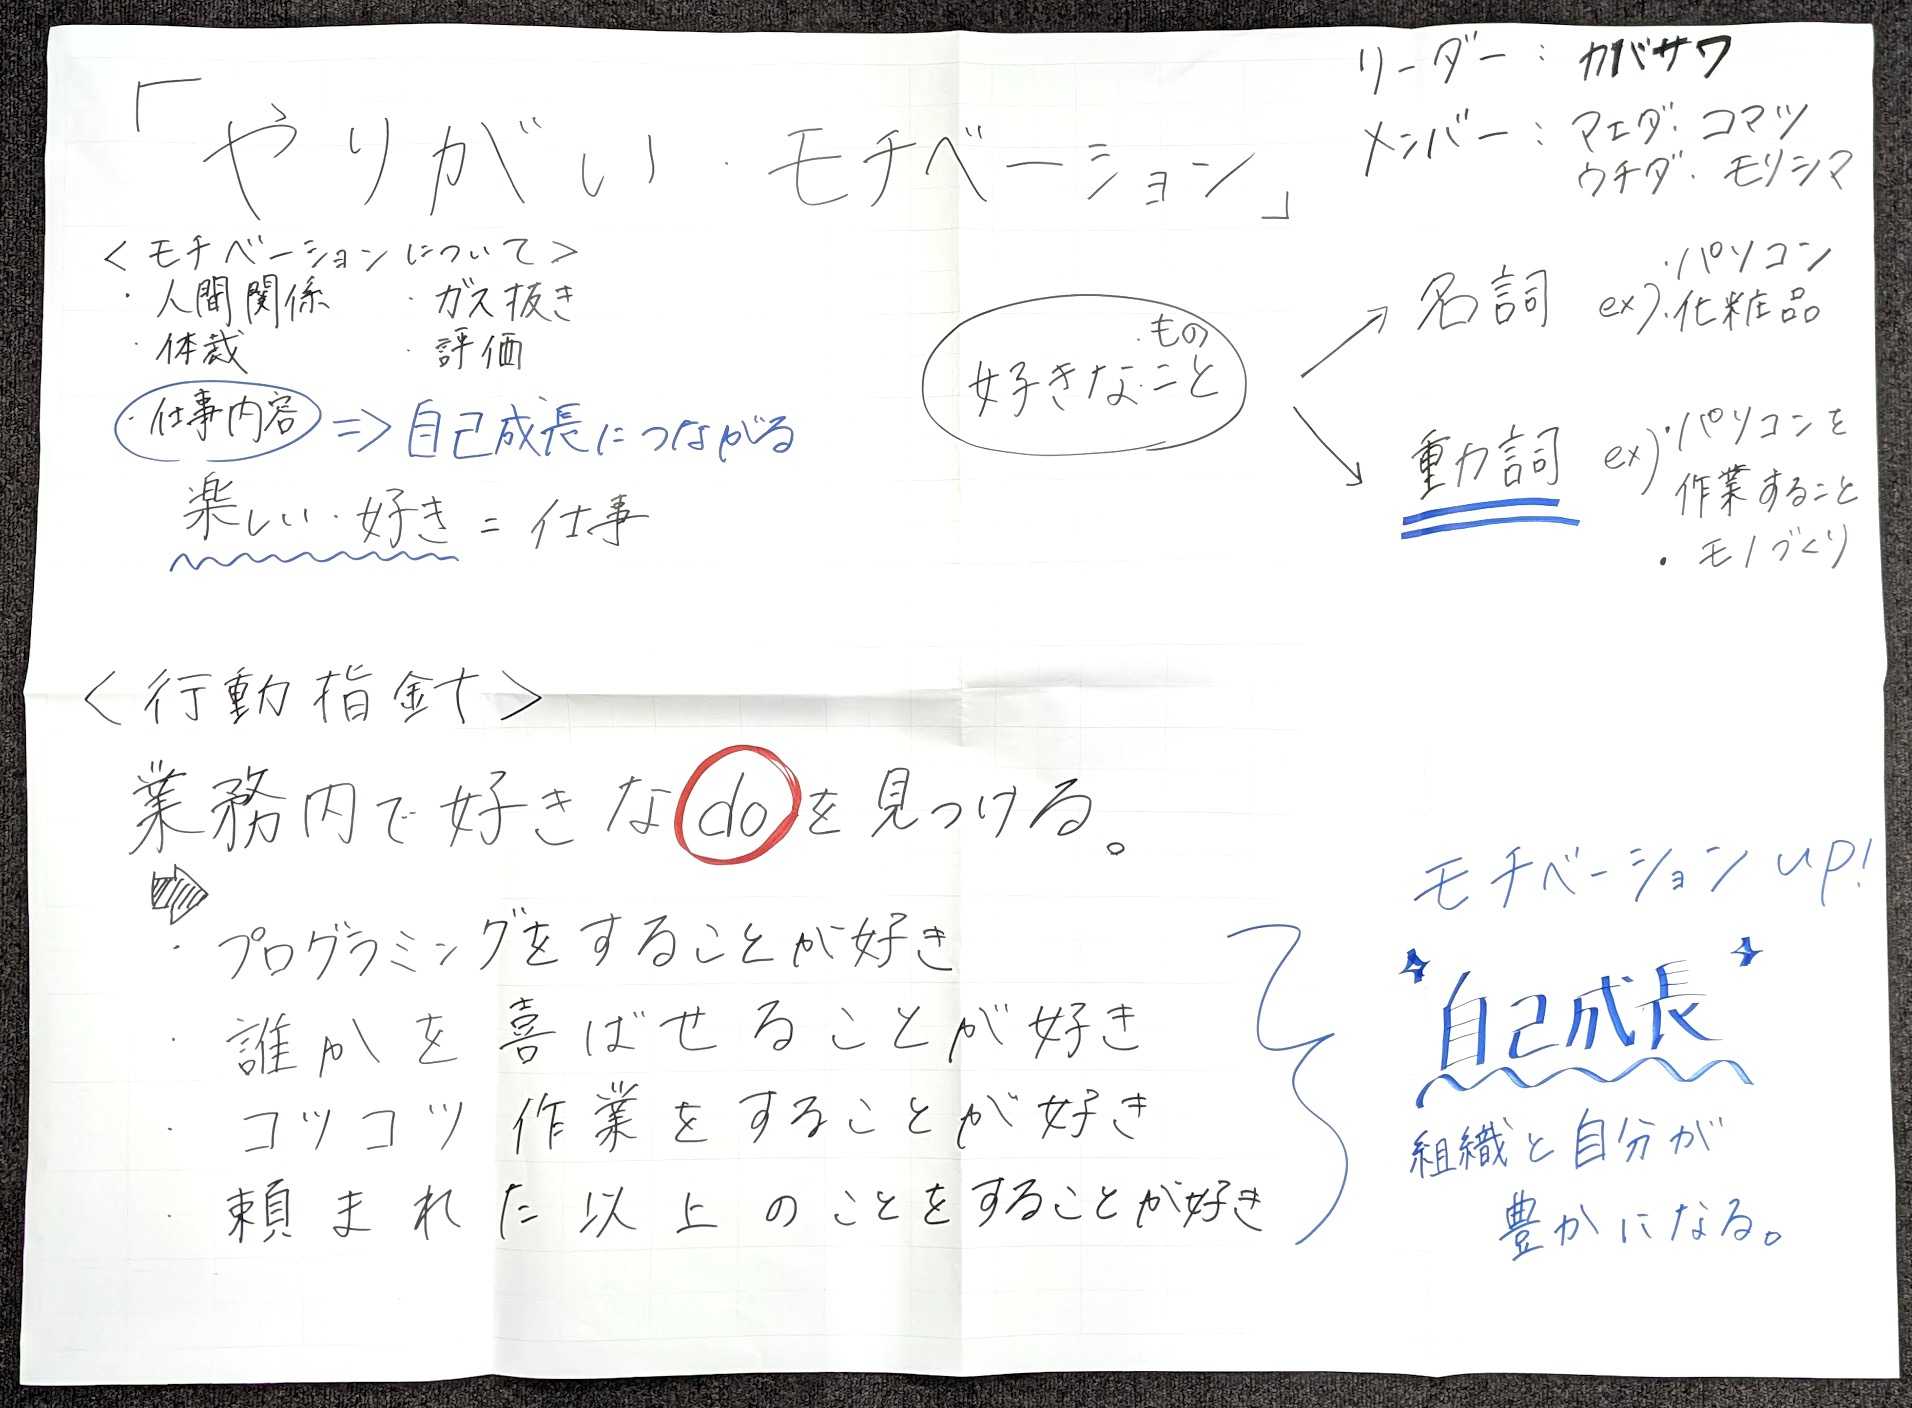 「やりがい・モチベーション」
リーダー：カバサワ
メンバー：マエダ・コマツ
ウチダ・モリシマ
＜モチベーションについて＞
・人間関係 ・ガス抜き
・体裁 ・評価
・仕事内容 ⇒ 自己成長につながる
楽しい・好き = 仕事
・もの
好きな・こと
名詞 ex)・パソコン
・化粧品
動詞 ex)・パソコンを
作業すること
・モノづくり
＜行動指針＞
業務内で好きなdoを見つける。
・プログラミングをすることが好き
・誰かを喜ばせることが好き
・コツコツ作業をすることが好き
・頼まれた以上のことをすることが好き
モチベーションup!
自己成長
組織と自分が
豊かになる。